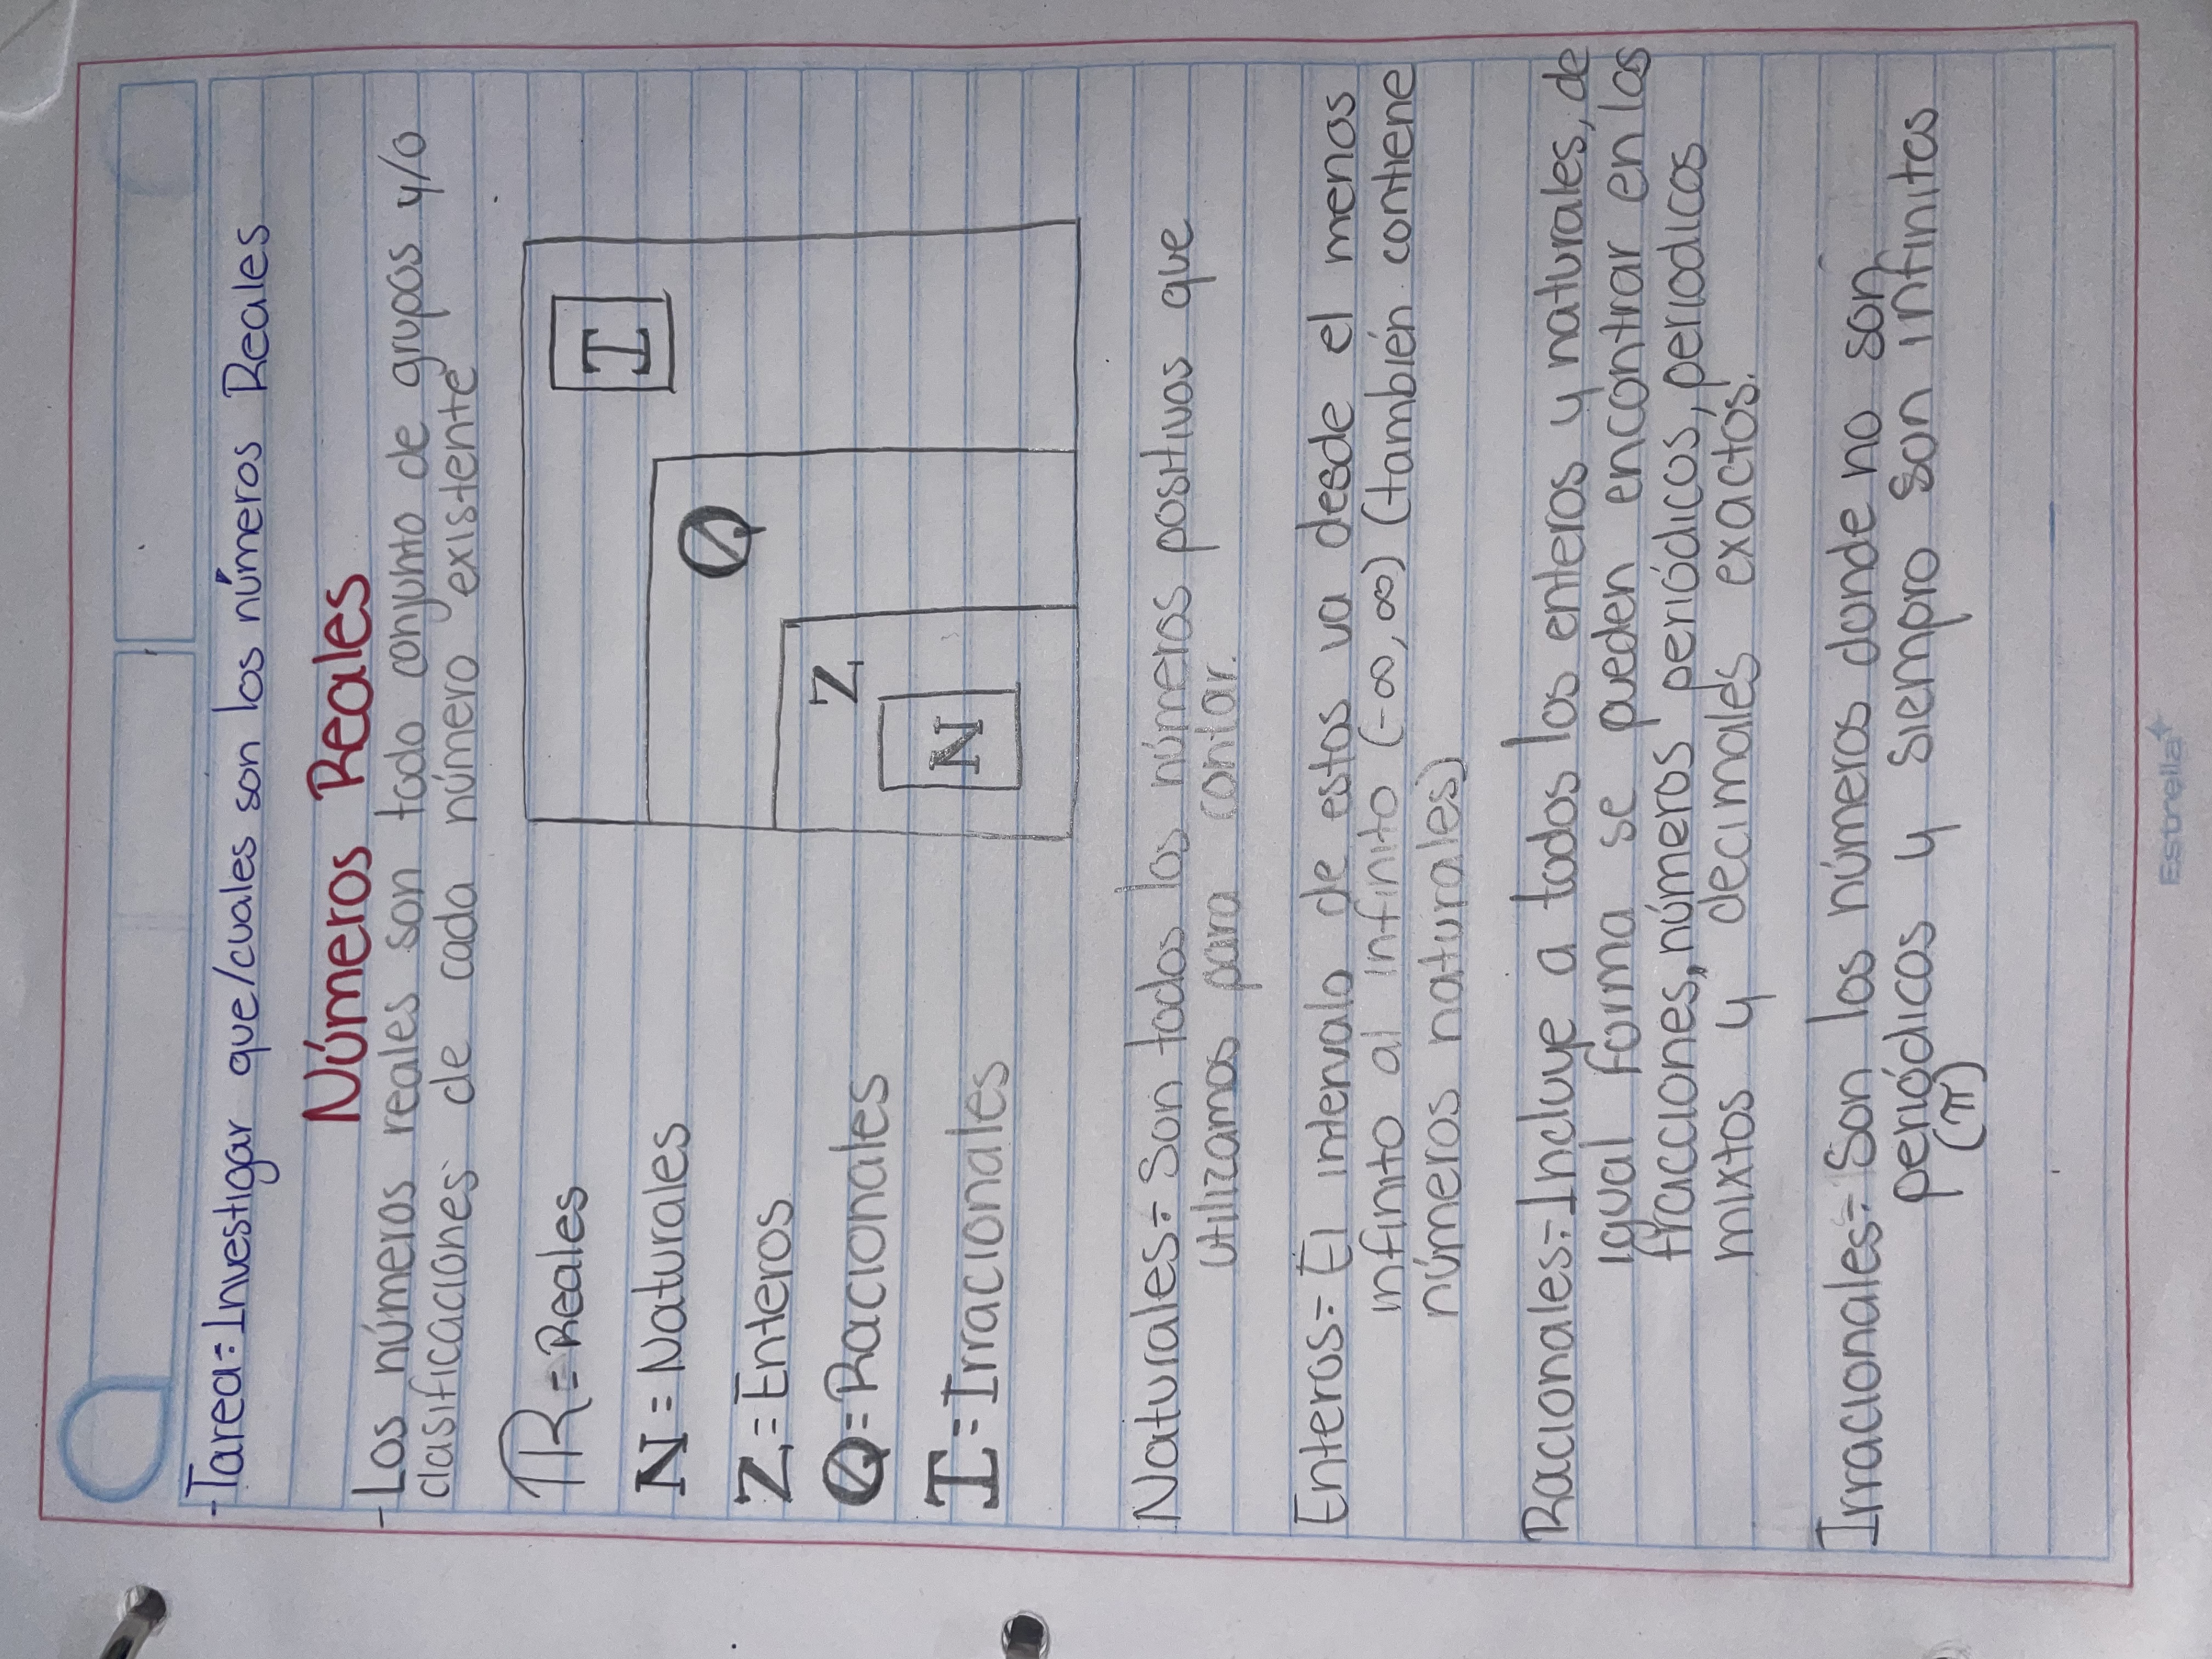 - Tarea= Investigar que/cuales son los números Reales
Números Reales
- Los números reales son todo conjunto de grupos y/o
clasificaciones de cada número existente
R = Reales
N = Naturales
Z = Enteros
Q = Racionales
I = Irracionales
I
Q
Z
N
Naturales= Son todos los números positivos que
utilizamos para contar.
Enteros= El intervalo de estos va desde el menos
infinito al infinito (-∞, ∞) (también contiene
números naturales)
Racionales= Incluye a todos los enteros y naturales, de
igual forma se pueden encontrar en las
fracciones, números periódicos, periodicos
mixtos y decimales exactos.
Irracionales= Son los números donde no son
periódicos y siempro son infinitos
(π)
Estrella